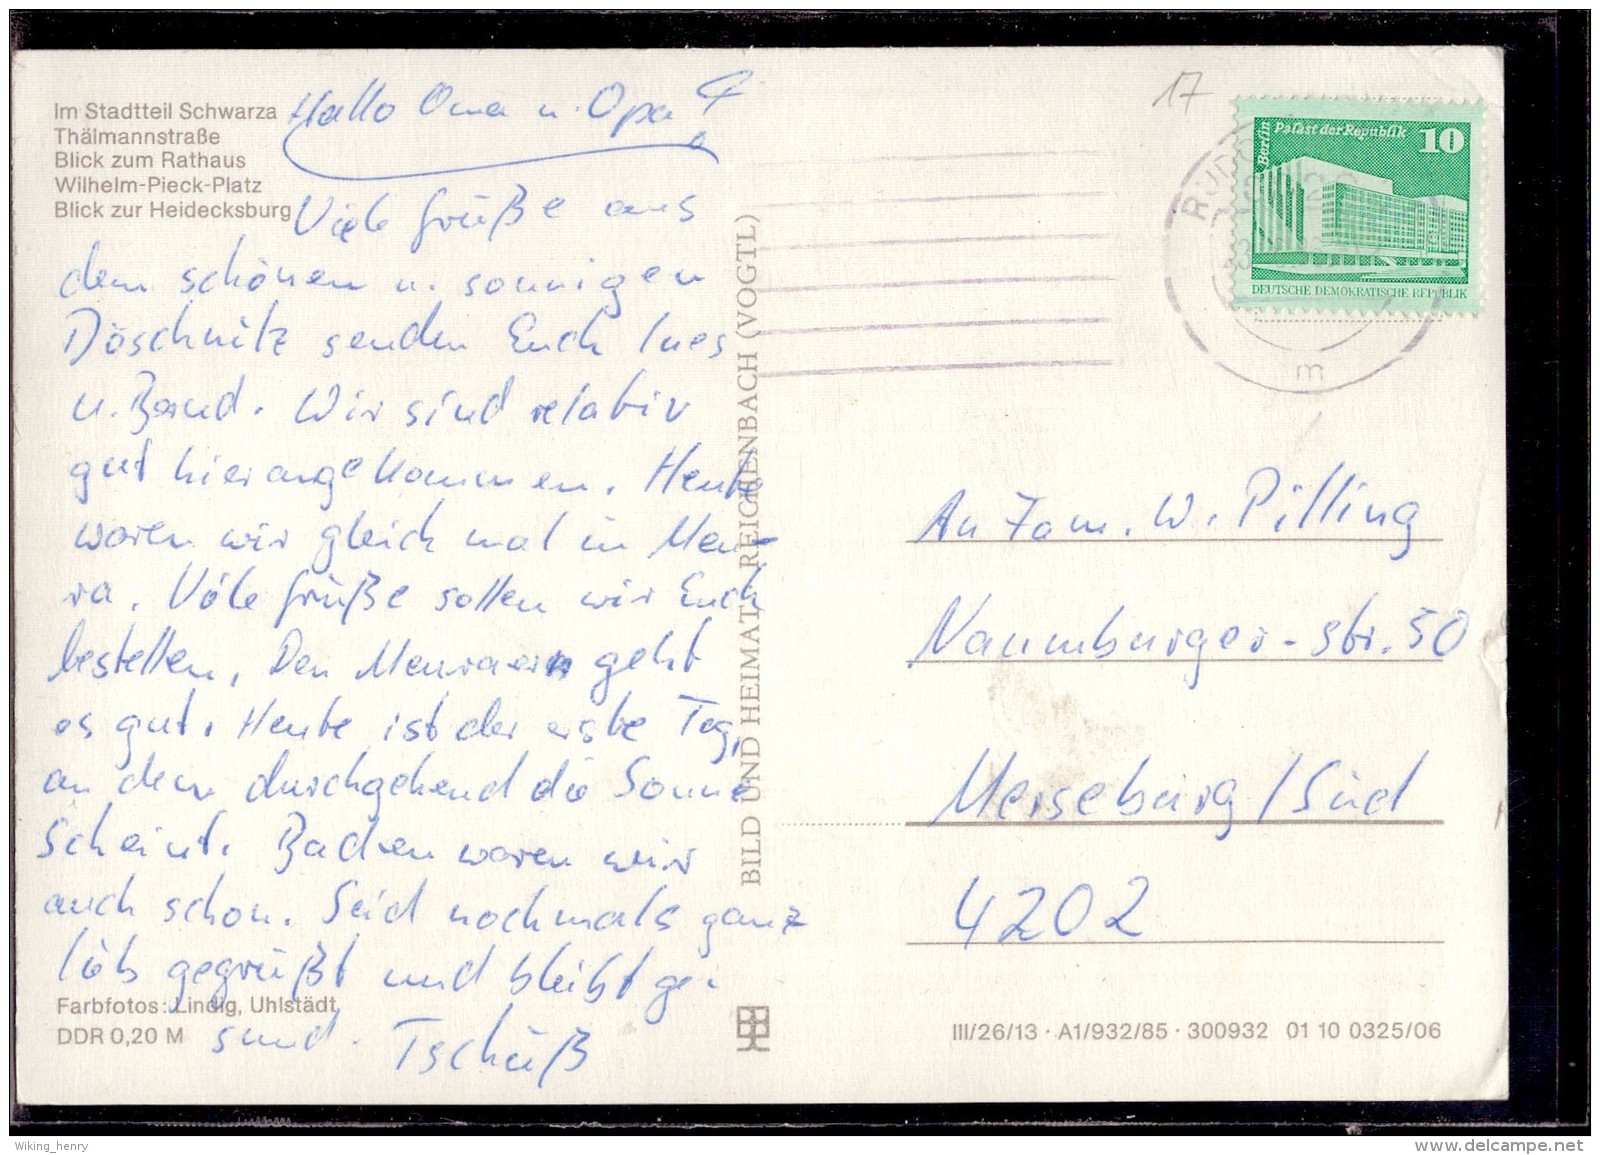 Im Stadtteil Schwarza
Thälmannstraße
Blick zum Rathaus
Wilhelm-Pieck-Platz
Blick zur Heidecksburg
Hallo Oma u. Opa!
Viele Grüße aus
dem schönen u. sonnigen
Döschnitz senden Euch Ines
u. Bernd. Wir sind relativ
gut hier angekommen. Heute
waren wir gleich mal in Meu-
ra. Viele Grüße sollen wir Euch
bestellen. Den Meuraern geht
es gut. Heute ist der erste Tag,
an dem durchgehend die Sonne
scheint. Baden waren wir
auch schon. Seid nochmals ganz
lieb gegrüßt und bleibt ge-
sund. Tschüß
Farbfotos: Lindig, Uhlstädt
DDR 0,20 M
BILD UND HEIMAT REICHENBACH (VOGTL)
17
Berlin
Palast der Republik
10
DEUTSCHE DEMOKRATISCHE REPUBLIK
RUDO
m
An Fam. W. Pilling
Naumburger-Str. 50
Merseburg/Süd
4202
III/26/13 · A1/932/85 · 300932 01 10 0325/06
Wiking_henry
www.delcampe.net